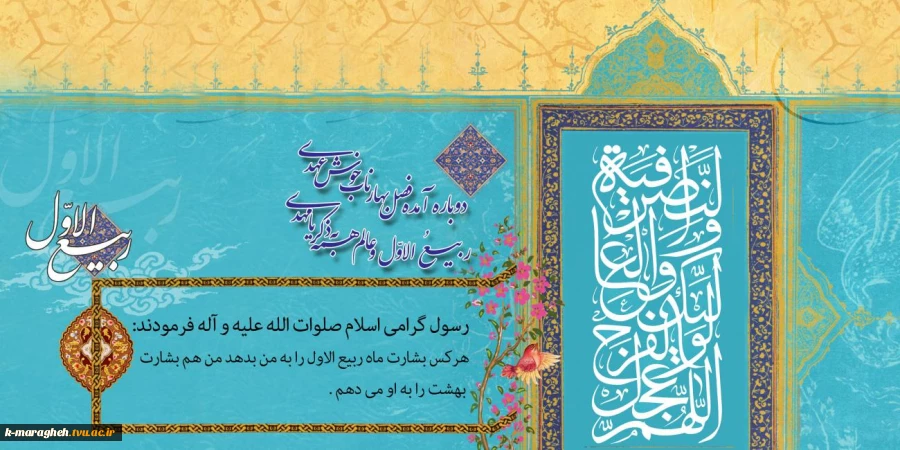 دوباره آمده فصل بهار ناب خوش عهدی
ربیعُ الاوّل و عالم همه به ذکر یا مهدی
ربیع الاوّل
رسول گرامی اسلام صلوات الله علیه و آله فرمودند:
هرکس بشارت ماه ربیع الاول را به من بدهد من هم بشارت
بهشت را به او می دهم .
اللّهمّ عجّل لولیّک الفرج والعافیة والنّصر
k-maragheh.tvu.ac.ir